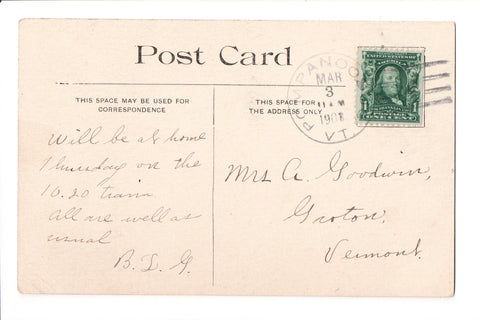 Post Card
THIS SPACE MAY BE USED FOR
CORRESPONDENCE
THIS SPACE FOR
THE ADDRESS ONLY
POMPANOO
MAR
3
11 AM
1908
VT.
UNITED STATES OF
AMERICA
1 1
ONE CENT
Will be at home
Thursday on the
10.20 train
All are well as
usual
B. L. G.
Mrs A. Goodwin,
Groton,
Vermont.